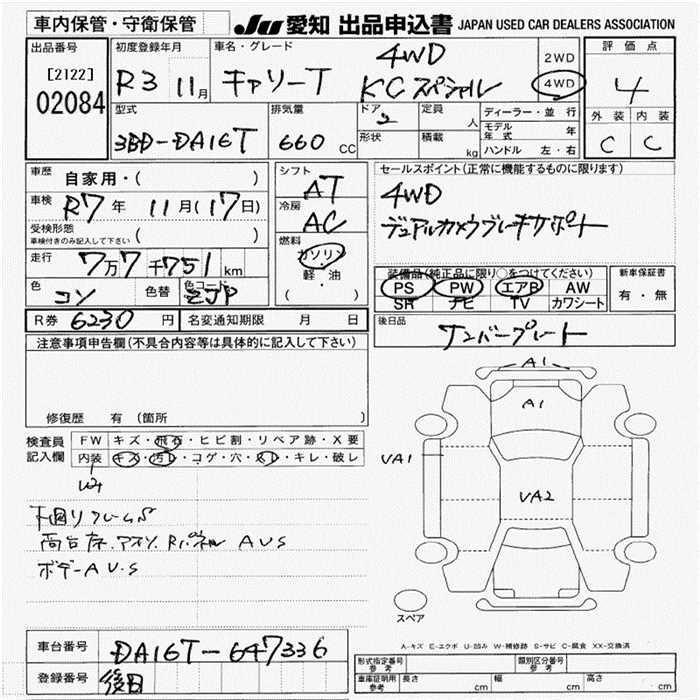 車内保管・守衛保管
JU 愛知 出品申込書 JAPAN USED CAR DEALERS ASSOCIATION
出品番号
[2122]
02084
初度登録年月
R3 11月
車名・グレード
キャリーT
4WD
KCスペシャル
2WD
4WD
評価点
4
外装 内装
C C
型式
3BD-DA16T
排気量
660 CC
ドア
2
形状
定員
人
積載
kg
ディーラー・並行
モデル年式 年
ハンドル 左・右
車歴
自家用・( )
車検
R7年 11月(17日)
受検形態
車検付きのみ記入して下さい ( )
走行
7万7千751 km
色
コン
色替
色コード
ZJP
シフト
AT
冷房
AC
燃料
ガソリン
軽・油
( )
セールスポイント(正常に機能するものに限ります)
4WD
デュアルカメラブレーキサポート
装備品(純正品に限り○をつけてください)
PS PW エアB AW
SR ナビ TV カワシート
新車保証書
有・無
R券 6230 円
名変通知期限 月 日
後日品
ナンバープレート
注意事項申告欄(不具合内容等は具体的に記入して下さい)
修復歴 有 (箇所 )
検査員記入欄
FW キズ・飛石・ヒビ割・リペア跡・X要
内装 キズ・汚レ・コゲ・穴・スレ・キレ・破レ
下回りフレームS
荷台床、アオリ、Rパネル AUS
ボデーAUS
A1
A1
VA1
VA2
スペア
A-キズ E-エクボ U-凹み W-補修跡 S-サビ C-腐食 XX-交換済
車台番号
DA16T-647336
登録番号
後日
形式指定番号 参考
類別区分番号 参考
車庫証明用 参考
長さ cm
幅 cm
高さ cm